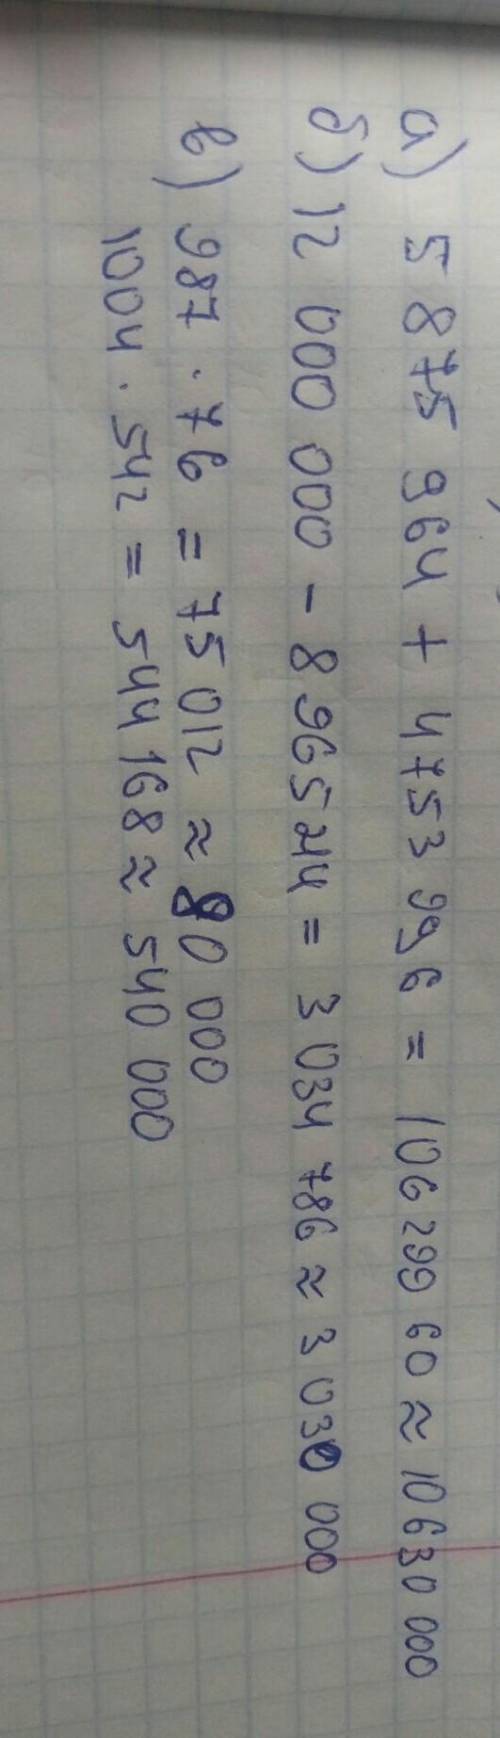 а) 5 875 964 + 4753 996 = 106299 60 ≈ 10630 000
б) 12 000 000 - 8 965214 = 3 034 786 ≈ 3 030 000
в) 987 · 76 = 75 012 ≈ 80 000
1004 · 542 = 544 168 ≈ 540 000